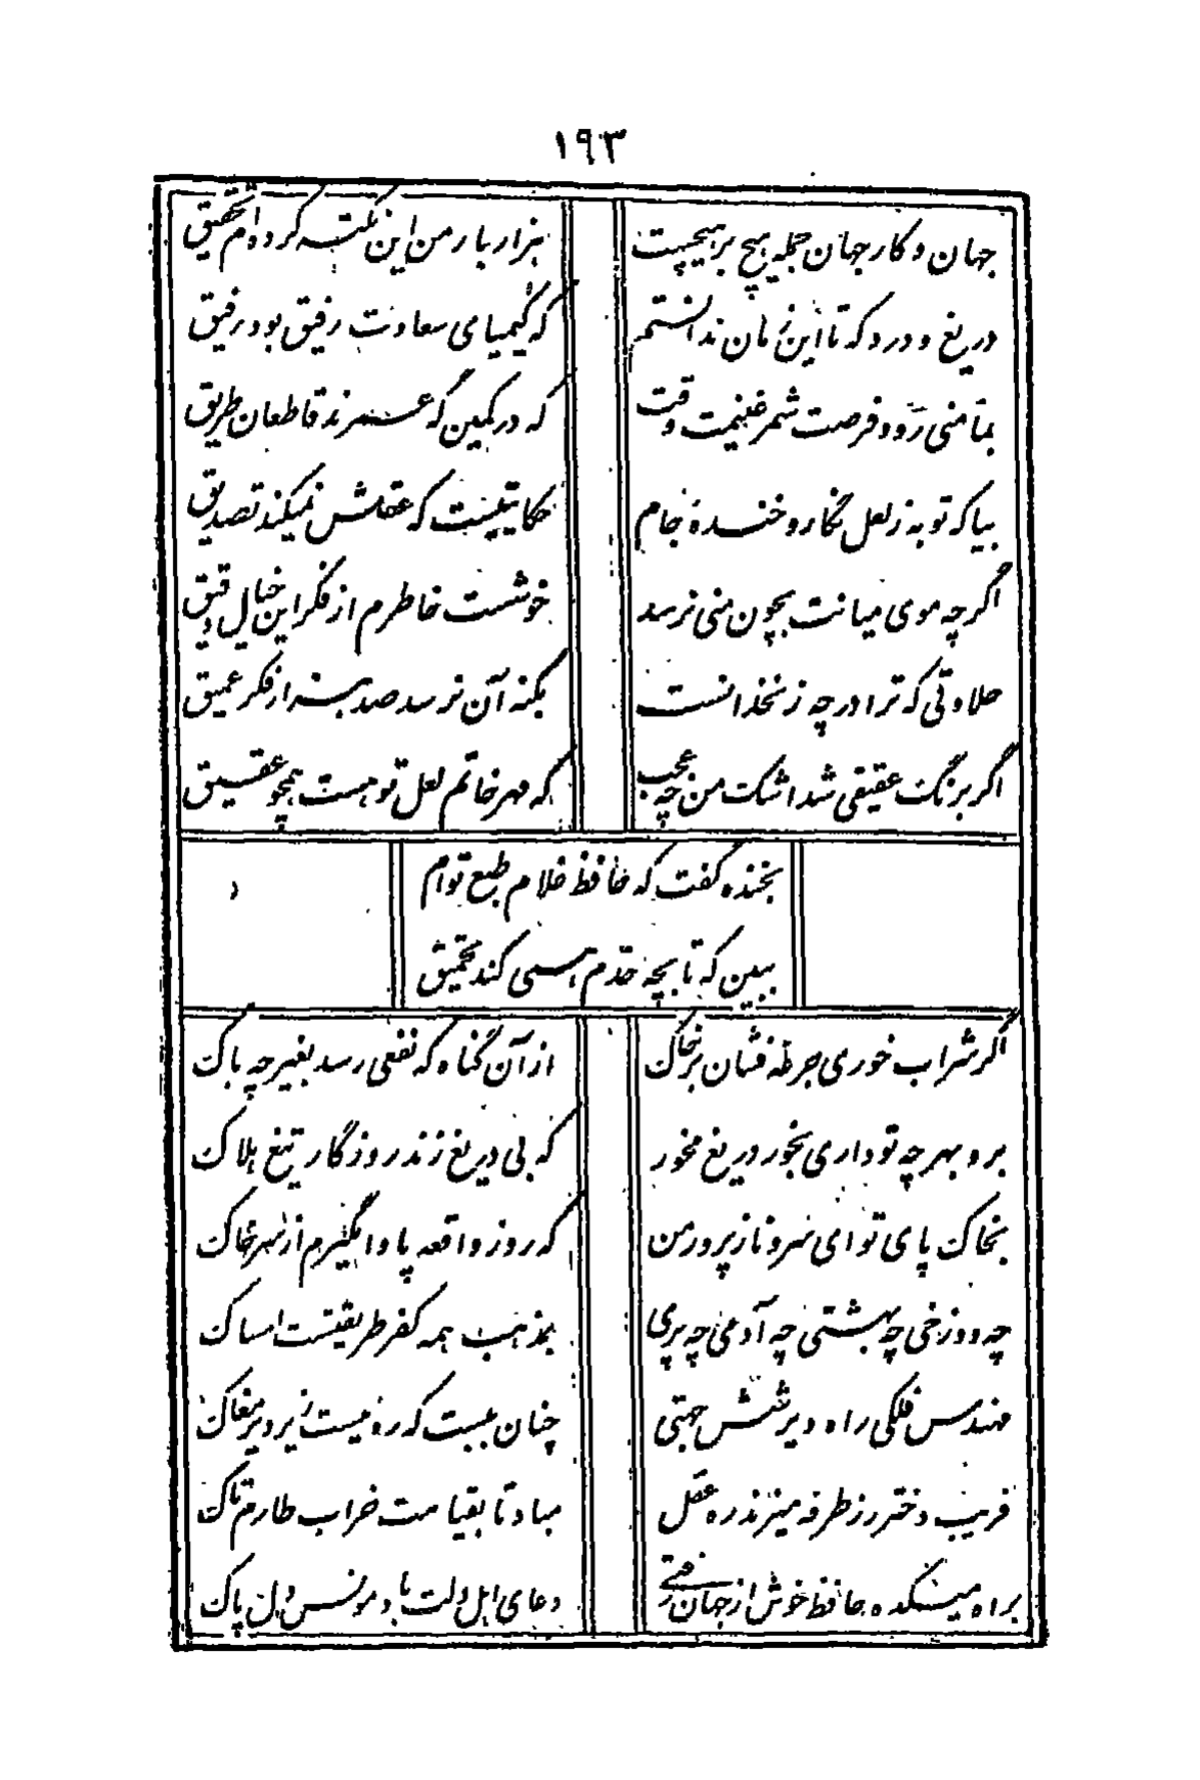 ۱۹۳
جهان و کار جهان جمله هیچ بر هیچست
هزار بار من این نکته کرده‌ام تحقیق
دریغ و درد که تا این زمان ندانستم
که کیمیای سعادت رفیق بود رفیق
بمأمنی رو و فرصت شمر غنیمت وقت
که در کمین‌گه عمرند قاطعان طریق
بیا که توبه ز لعل نگار و خندهٔ جام
حکایتیست که عقلش نمیکند تصدیق
اگر چه موی میانت بچون منی نرسد
خوشست خاطرم از فکر این خیال دقیق
حلاوتی که ترا در چه زنخدانست
بکنه آن نرسد صد هزار فکر عمیق
اگر برنگ عقیقی شد اشک من چه عجب
که مهر خاتم لعل تو هست همچو عقیق
بخنده گفت که حافظ غلام طبع توام
ببین که تا بچه حدم همی کند تحمیق
اگر شراب خوری جرعه فشان بر خاک
از آن گناه که نفعی رسد بغیر چه باک
برو بهر چه تو داری بخور دریغ مخور
که بی دریغ زند روزگار تیغ هلاک
بخاک پای تو ای سرو ناز پرور من
که روز واقعه پا وامگیرم از سر خاک
چه دوزخی چه بهشتی چه آدمی چه پری
بمذهب همه کفر طریقتست امساک
مهندس فلکی راه دیر شش جهتی
چنان ببست که ره نیست زیر دیر مغاک
فریب دختر رز طرفه میزند ره عقل
مباد تا بقیامت خراب طارم تاک
براه میکده حافظ خوش از جهان رفتی
دعای اهل دلت باد مونس دل پاک